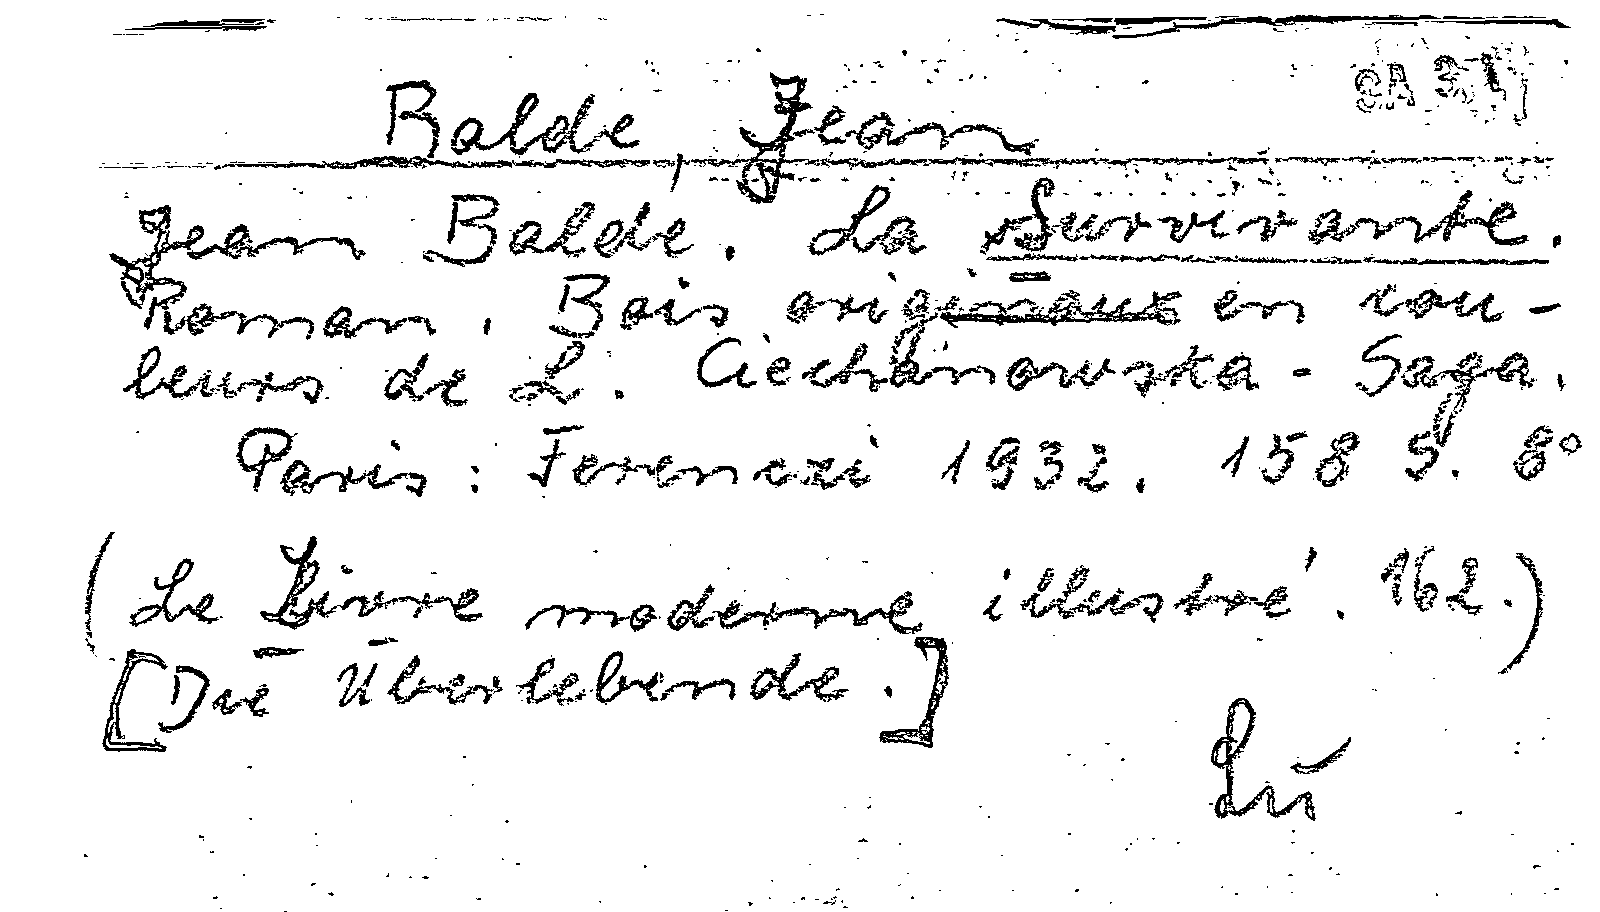 SA 31
Balde, Jean
Jean Balde. La Survivante.
Roman. Bois originaux en cou-
leurs de L. Ciechanowska-Saga.
Paris: Ferenczi 1932. 158 S. 8°
(Le Livre moderne illustré. 162.)
[Die Überlebende.]
Lü